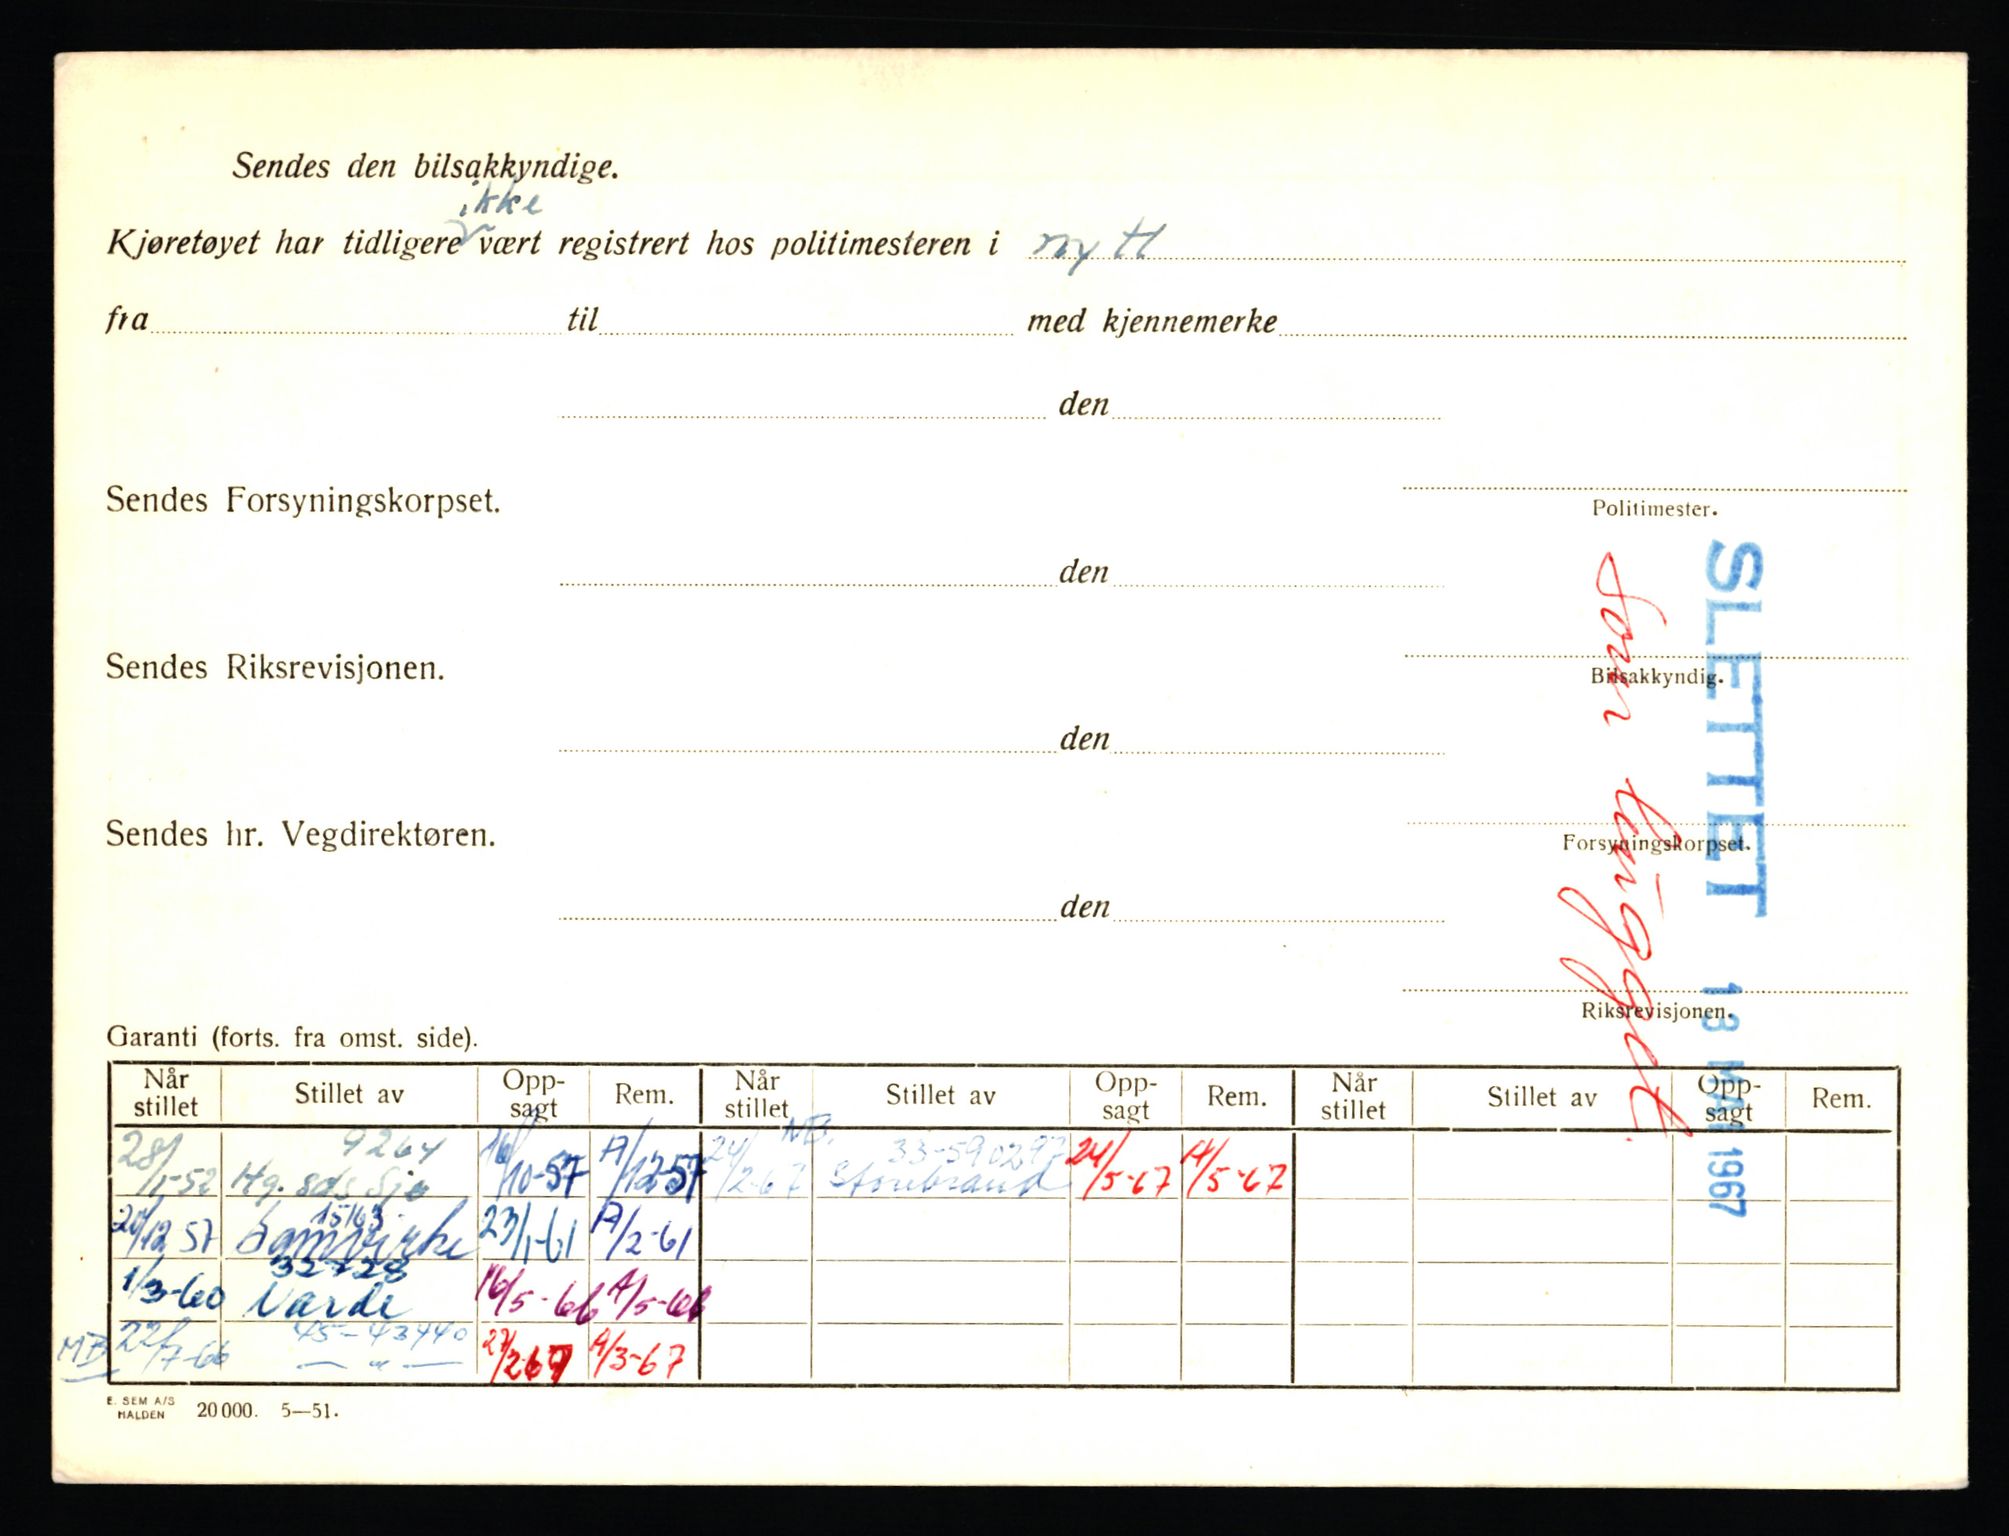 Sendes den bilsakkyndige.
ikke
Kjøretøyet har tidligere vært registrert hos politimesteren i nytt
fra til med kjennemerke
den
Sendes Forsyningskorpset.
Politimester.
den
Sendes Riksrevisjonen.
Bilsakkyndig.
den
Sendes hr. Vegdirektøren.
Forsyningskorpset.
den
Riksrevisjonen.
SLETTET 18 MAI 1967
Som
Garanti (forts. fra omst. side).
Når stillet Stillet av Opp-sagt Rem. Når stillet Stillet av Opp-sagt Rem. Når stillet Stillet av Opp-sagt Rem.
28/1-52 9264 16/10-57 A/12-57 24/2-67 MB. 33-590297 24/5-67 A/5-67
Hg. sds Sjø Storebrand
12 57 15163 Samvirke 23/1-61 A/2-61
1/3-60 32728 Varde 16/5-66 A/5-66
MB 22/7-66 45-43440 — " — 27/2-67 A/3-67
E. SEM A/S
HALDEN 20 000. 5—51.